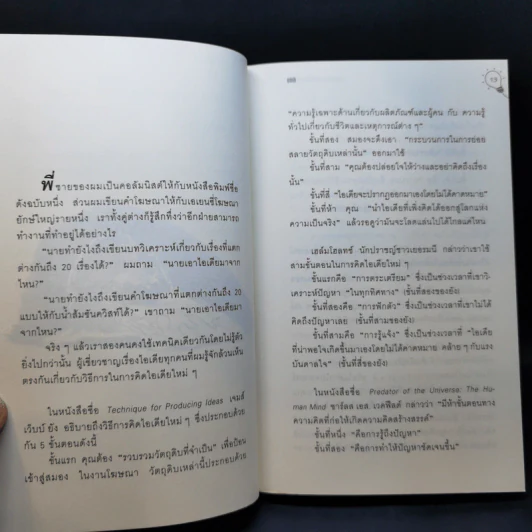 พี่ชายของผมเป็นคอลัมนิสต์ให้กับหนังสือพิมพ์ชื่อ
ดังฉบับหนึ่ง ส่วนผมเขียนคำโฆษณาให้กับเอเยนซี่โฆษณา
ยักษ์ใหญ่รายหนึ่ง เราทั้งคู่ต่างก็รู้สึกทึ่งว่าอีกฝ่ายสามารถ
ทำงานที่ทำอยู่ได้อย่างไร
"นายทำยังไงถึงเขียนบทวิเคราะห์เกี่ยวกับเรื่องที่แตก
ต่างกันถึง 20 เรื่องได้?" ผมถาม "นายเอาไอเดียมาจาก
ไหน?"
"นายทำยังไงถึงเขียนคำโฆษณาที่แตกต่างกันถึง 20
แบบให้กับน้ำส้มซันควิสท์ได้?" เขาถาม "นายเอาไอเดียมา
จากไหน?"
จริง ๆ แล้วเราสองคนคงใช้เทคนิคเดียวกันโดยไม่รู้ตัว
ยิ่งไปกว่านั้น ผู้เชี่ยวชาญเรื่องไอเดียทุกคนที่ผมรู้จักล้วนเห็น
ตรงกันเกี่ยวกับวิธีการในการคิดไอเดียใหม่ ๆ
ในหนังสือชื่อ Technique for Producing Ideas เจมส์
เว็บบ์ ยัง อธิบายถึงวิธีการคิดไอเดียใหม่ ๆ ซึ่งประกอบด้วย
กัน 5 ขั้นตอนดังนี้
ขั้นแรก คุณต้อง "รวบรวมวัตถุดิบที่จำเป็น" เพื่อป้อน
เข้าสู่สมอง ในงานโฆษณา วัตถุดิบเหล่านี้ประกอบด้วย
"ความรู้เฉพาะด้านเกี่ยวกับผลิตภัณฑ์และผู้คน กับ ความรู้
ทั่วไปเกี่ยวกับชีวิตและเหตุการณ์ต่าง ๆ"
ขั้นที่สอง สมองจะดึงเอา "กระบวนการในการย่อย
สลายวัตถุดิบเหล่านั้น" ออกมาใช้
ขั้นที่สาม "คุณต้องปล่อยใจให้ว่างและอย่าคิดถึงเรื่อง
นั้น"
ขั้นที่สี่ "ไอเดียจะปรากฏออกมาเองโดยไม่ได้คาดหมาย"
ขั้นที่ห้า คุณ "นำไอเดียที่เพิ่งคิดได้ออกสู่โลกแห่ง
ความเป็นจริง" แล้วรอดูว่ามันจะโลดแล่นไปได้ไกลแค่ไหน
เฮล์มโฮลทซ์ นักปราชญ์ชาวเยอรมนี กล่าวว่าเขาใช้
สามขั้นตอนในการคิดไอเดียใหม่ ๆ
ขั้นแรกคือ "การตระเตรียม" ซึ่งเป็นช่วงเวลาที่เขาวิ-
เคราะห์ปัญหา "ในทุกทิศทาง" (ขั้นที่สองของยัง)
ขั้นที่สองคือ "การพักตัว" ซึ่งเป็นช่วงเวลาที่เขาไม่ได้
คิดถึงปัญหาเลย (ขั้นที่สามของยัง)
ขั้นที่สามคือ "การรู้แจ้ง" ซึ่งเป็นช่วงเวลาที่ "ไอเดีย
ที่น่าพอใจเกิดขึ้นมาเองโดยไม่ได้คาดหมาย คล้าย ๆ กับแรง
บันดาลใจ" (ขั้นที่สี่ของยัง)
ในหนังสือชื่อ Predator of the Universe: The Hu-
man Mind ชาร์ลส เอส เวคฟิลด์ กล่าวว่า "มีห้าขั้นตอนทาง
ความคิดที่ก่อให้เกิดความคิดสร้างสรรค์"
ขั้นที่หนึ่ง "คือการรู้ถึงปัญหา"
ขั้นที่สอง "คือการทำให้ปัญหาชัดเจนขึ้น"